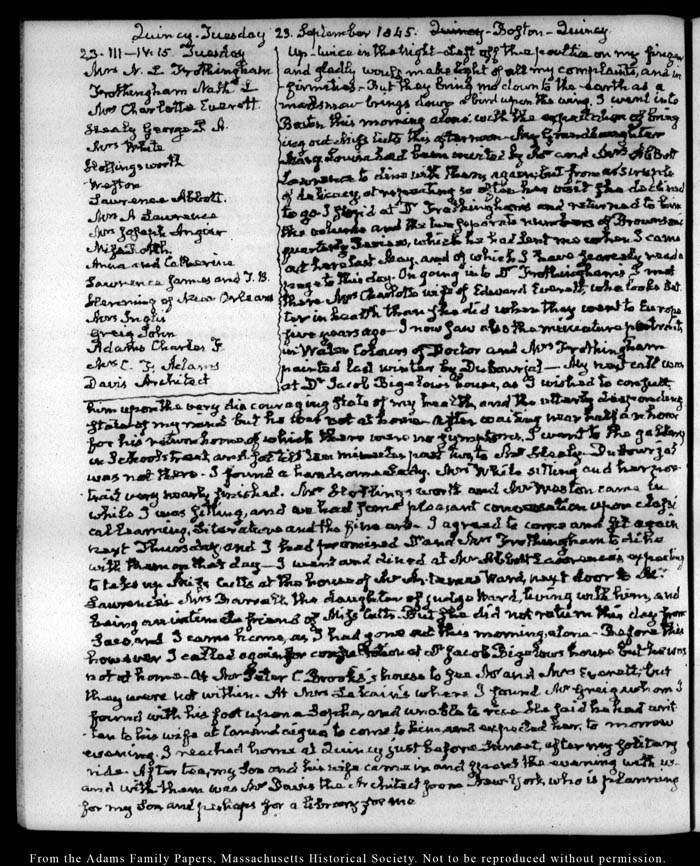 Quincy - Tuesday 23. September 1845. Quincy - Boston - Quincy
23. III - IV. 15. Tuesday
Mrs N. L Frothingham
Frothingham Nath L
Mrs Charlotte Everett
Healy George P. A.
Mrs White
Hollingsworth
Weston
Lawrence Abbott.
Mrs A Lawrence
Mrs Joseph Angier
Miss Roth.
Anna and Catherine
Lawrence James and T. B.
Slevening of New Orleans
Mrs Inglis
Greig John
Adams Charles F.
Mrs C. F. Adams
Davis Architect
Up twice in the night - Left off the poultice on my finger
and gladly would make light of all my complaints, and in-
firmities - But they bring me down to the earth as a
marksman brings down a bird upon the wing. I went into
Boston this morning alone with the expectation of bring
ing out Miss Cutts this afternoon - My Granddaughter
Mary Louisa had been invited by Mr and Mrs Abbott
Lawrence to dine with them again, but from a scruple
of delicacy, at repeating so often her visit she declined
to go - I stop'd at Dr Frothingham's and returned to him
the volume and the two separate numbers of Brownson's
quarterly Review, which he had lent me when I came
out here last May, and of which I have scarcely read a
page to this day. On going in to Dr Frothingham's I met
there Mrs Charlotte wife of Edward Everett, who looks bet-
ter in health than she did when they went to Europe
five years ago - I now saw also the miniature portraits
in Water Colours of Doctor and Mrs Frothingham
painted last winter by Dubourjal - My next call was
at Dr Jacob Bigelow's house, as I wished to consult
him upon the very discouraging state of my health, and the utterly desponding
state of my mind but he was not at home. After waiting near half an hour
for his return home of which there were no symptoms, I went to the gallery
in School street and sat till ten minutes past two, to Mr Healy. Dubourjal
was not there - I found a handsome Lady, Mrs White sitting and her por-
trait very nearly finished. Mr Hollingsworth and Mr Weston came in
while I was sitting, and we had some pleasant conversation upon classi-
cal learning, Literature and the fine arts - I agreed to come and sit again
next Thursday, and I had promised Dr and Mrs Frothingham to dine
with them on that day - I went and dined at Mr Abbott Lawrence's expecting
to take up Miss Cutts at the house of Mr Artemas Ward, next door to Mr
Lawrence's Mrs Barrett the daughter of judge Ward, living with him, and
being an intimate friend of Miss Cutts. But she did not return this day from
Saco, and I came home, as I had gone out this morning, alone - Before this
however I called again for consultation at Dr Jacob Bigelow's house but he was
not at home - at Mr Peter C Brooks's house to see Mr and Mrs Everett; but
they were not within. At Mrs Lekain's where I found Mr Greig whom I
found with his foot upon a Sopha, and unable to rise. He said he had writ
ten to his wife at Canandaigua to come to him and expected her to morrow
evening. I reached home at Quincy just before Sunset, after my solitary
ride. After tea, my Son and his wife came in and passed the evening with us
and with them was Mr Davis the Architect from New York, who is planning
for my Son and perhaps for a library for me
From the Adams Family Papers, Massachusetts Historical Society. Not to be reproduced without permission.